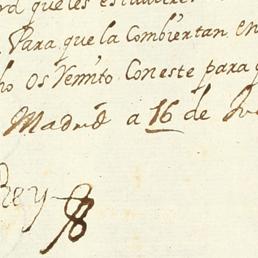 que les estuviere
Para que la Combiertan en
ho os Remito Con este para q
Madrid a 16 de Ju
Rey